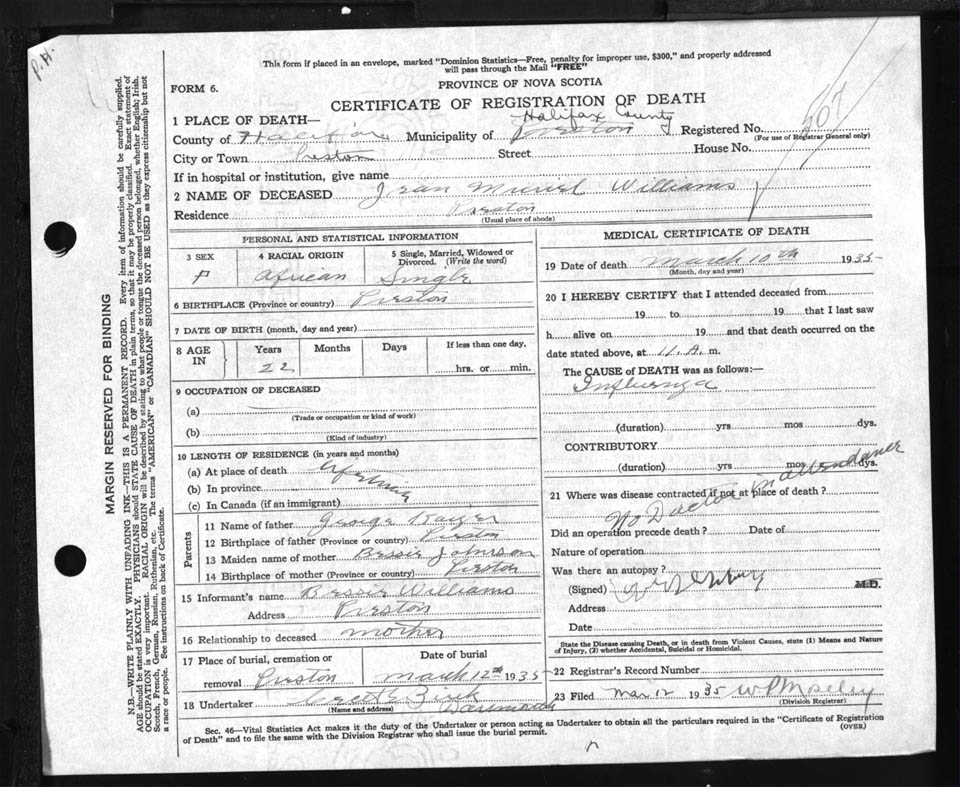 P.H.
This form if placed in an envelope, marked "Dominion Statistics—Free, penalty for improper use, $300," and properly addressed
will pass through the Mail "FREE"
FORM 6.
PROVINCE OF NOVA SCOTIA
CERTIFICATE OF REGISTRATION OF DEATH
1 PLACE OF DEATH—
Halifax County
County of Halifax Municipality of Preston Registered No. 507
(For use of Registrar General only)
City or Town Preston Street House No.
If in hospital or institution, give name
2 NAME OF DECEASED Jean Muriel Williams
Residence Preston
(Usual place of abode)
PERSONAL AND STATISTICAL INFORMATION
3 SEX 4 RACIAL ORIGIN 5 Single, Married, Widowed or Divorced. (Write the word)
F African Single
6 BIRTHPLACE (Province or country) Preston
7 DATE OF BIRTH (month, day and year)
8 AGE IN Years Months Days If less than one day,
22 hrs. or min.
9 OCCUPATION OF DECEASED
(a)
(Trade or occupation or kind of work)
(b)
(Kind of industry)
10 LENGTH OF RESIDENCE (in years and months)
(a) At place of death
(b) In province
(c) In Canada (if an immigrant)
Parents
11 Name of father George
12 Birthplace of father (Province or country) Preston
13 Maiden name of mother Bessie Johnson
14 Birthplace of mother (Province or country) Preston
15 Informant's name Bessie Williams
Address Preston
16 Relationship to deceased mother
17 Place of burial, cremation or removal Preston Date of burial March 12th 1935
18 Undertaker Dartmouth
(Name and address)
MEDICAL CERTIFICATE OF DEATH
19 Date of death March 10th 1935
(Month, day and year)
20 I HEREBY CERTIFY that I attended deceased from
19 to 19 that I last saw
h alive on 19 and that death occurred on
date stated above, at 11.A. m.
The CAUSE of DEATH was as follows:—
Influenza
(duration) yrs mos dys.
CONTRIBUTORY
(duration) yrs mos dys.
21 Where was disease contracted if not at place of death?
No Doctor in attendance
Did an operation precede death? Date of
Nature of operation
Was there an autopsy?
(Signed) M.D.
Address
Date
State the Disease causing Death, or in death from Violent Causes, state (1) Means and Nature
of Injury, (2) whether Accidental, Suicidal or Homicidal.
22 Registrar's Record Number
23 Filed Mar 12 1935 W P Moseley
(Division Registrar)
Sec. 46—Vital Statistics Act makes it the duty of the Undertaker or person acting as Undertaker to obtain all the particulars required in the "Certificate of Registration
of Death" and to file the same with the Division Registrar who shall issue the burial permit.
(OVER)
MARGIN RESERVED FOR BINDING
N.B.—WRITE PLAINLY WITH UNFADING INK—THIS IS A PERMANENT RECORD. Every item of information should be carefully supplied.
AGE should be stated EXACTLY. PHYSICIANS should STATE CAUSE OF DEATH in plain terms, so that it may be properly classified. Exact statement of
OCCUPATION is very important. RACIAL ORIGIN will be described by stating to what people or tongue the deceased person belonged, whether English; Irish,
Scotch, French, German, Russian, Ruthenian, etc. The terms "AMERICAN" or "CANADIAN" SHOULD NOT BE USED as they express citizenship but not
a race or people. See instructions on back of Certificate.